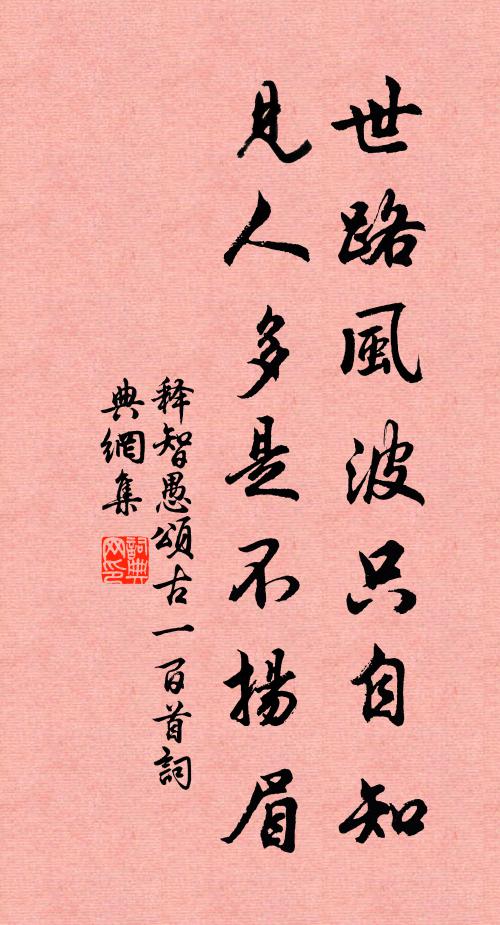 世路風波只自知
見人多是不揚眉
释智愚頌古一百首詞
典網集
詞典
网印